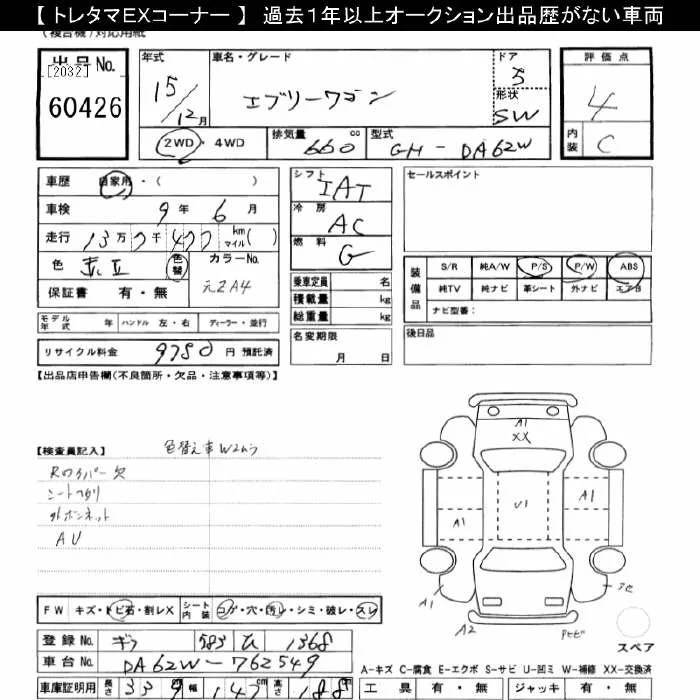 【 トレタマEXコーナー 】 過去1年以上オークション出品歴がない車両
出品 No.
[2032]
60426
年式
15/12月
車名・グレード
エブリーワゴン
ドア
5
形状
SW
評価点
4
内装
C
2WD・4WD
排気量 660 cc
型式 GH-DA62W
車歴 自家用・( )
車検 9年 6月
走行 13万7千477 km マイル( )
色 色替 カラーNo. 元Z A4
保証書 有・無
シフト IAT
冷房 AC
燃料 G
乗車定員 名
積載量 kg
総重量 kg
セールスポイント
装備品
S/R 純A/W P/S P/W ABS
純TV 純ナビ 革シート 外ナビ エアB
ナビ型番:
モデル年式 年 ハンドル 左・右 ディーラー・並行
リサイクル料金 9780 円 預託済
名変期限 月 日
後日品
【出品店申告欄(不良箇所・欠品・注意事項等)】
【検査員記入】 色替え車Wムラ
Rワイパー欠
外ボンネット
AU
A1
XX
U1
A1
A1
A1
A2
FW キズ・トビ石・割レX シート内装 コゲ・穴・汚レ・シミ・破レ・スレ
スペア
登録 No. ギフ 583 1368
車台 No. DA62W-762549
A-キズ C-腐食 E-エクボ S-サビ U-凹ミ W-補修 XX-交換済
車庫証明用 長さ 339 cm 幅 147 cm 高さ 188 cm
工具 有・無 ジャッキ 有・無